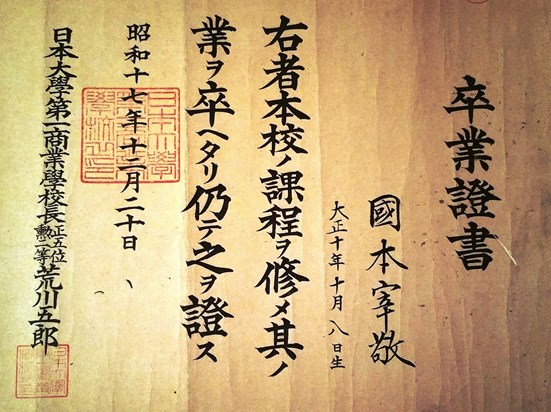 卒業證書
國本宰敬
大正十年十月八日生
右者本校ノ課程ヲ修メ其ノ
業ヲ卒ヘタリ仍テ之ヲ證ス
昭和十七年十二月二十日
日本大學第一商業學校長正五位勲二等荒川五郎